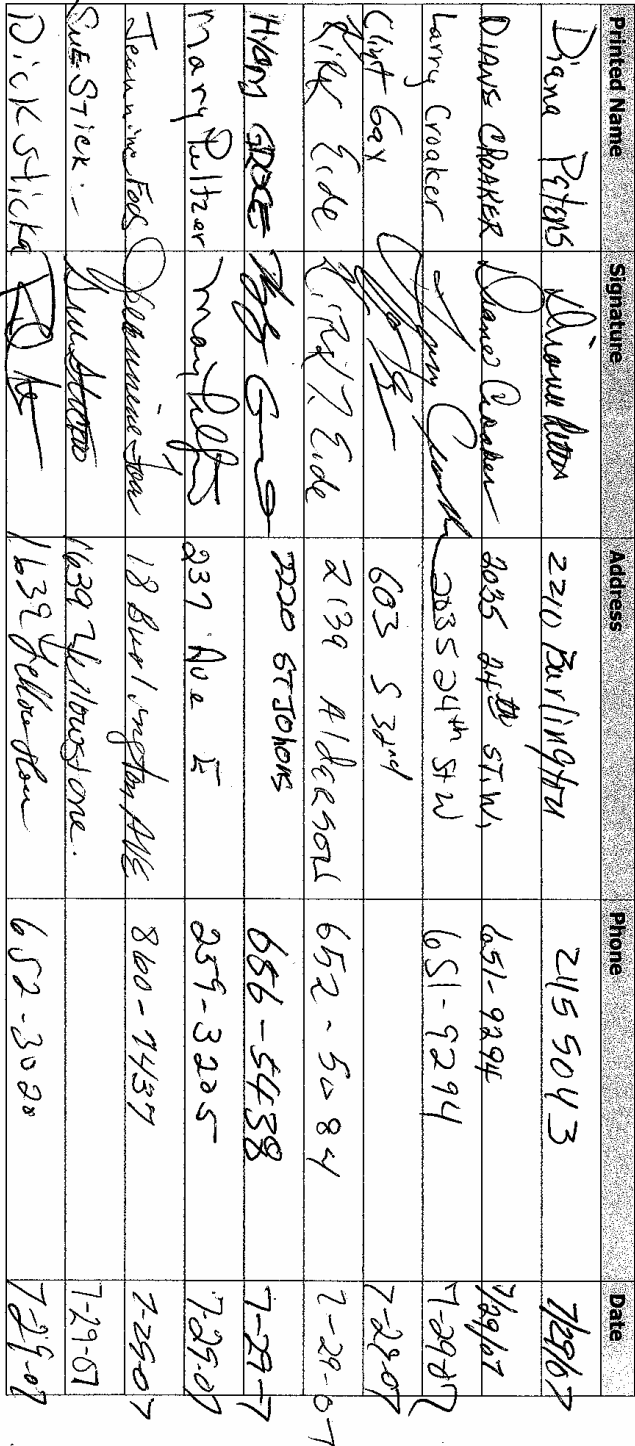 Printed Name Signature Address Phone Date
Diana Peters 2210 Burlington 245 5043 7/29/07
DIANE CROAKER Diane Croaker 2035 24th ST. W. 651-9294 7/29/07
Larry Croaker Larry 2035 24th St W 651-9294 7-29-07
Clint Gay 603 S 32nd 7-29-07
Kirk Eide Kirk Eide 2139 Alderson 652-5084 7-29-07
GROSE 2220 ST JOHNS 656-5438 7-29-7
Mary Peltzer Mary 237 Ave E 259-3205 7-29-07
Jeannine Foos Jeannine Foos 18 Burlington AVE 860-7437 7-29-07
SUE STICK 1639 Yellowstone. 7-29-07
Dick Sticka 1639 Yellowstone 652-3020 7-29-07